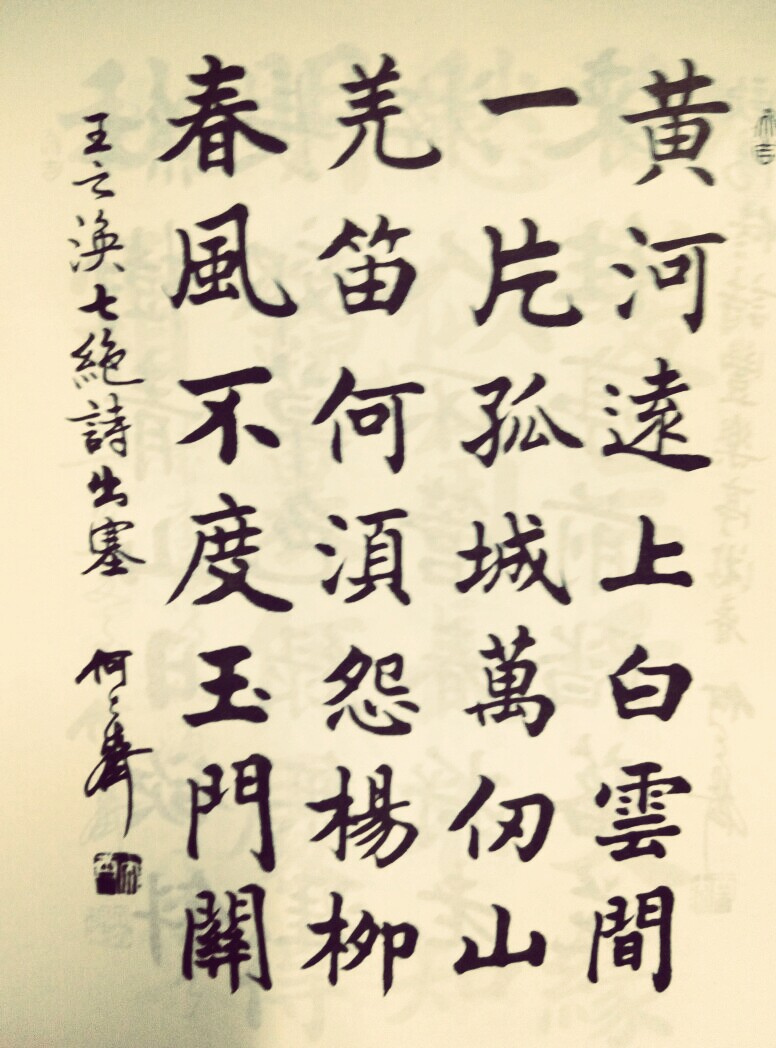 黄河遠上白雲間
一片孤城萬仞山
羌笛何須怨楊柳
春風不度玉門關
王之渙七絕詩出塞